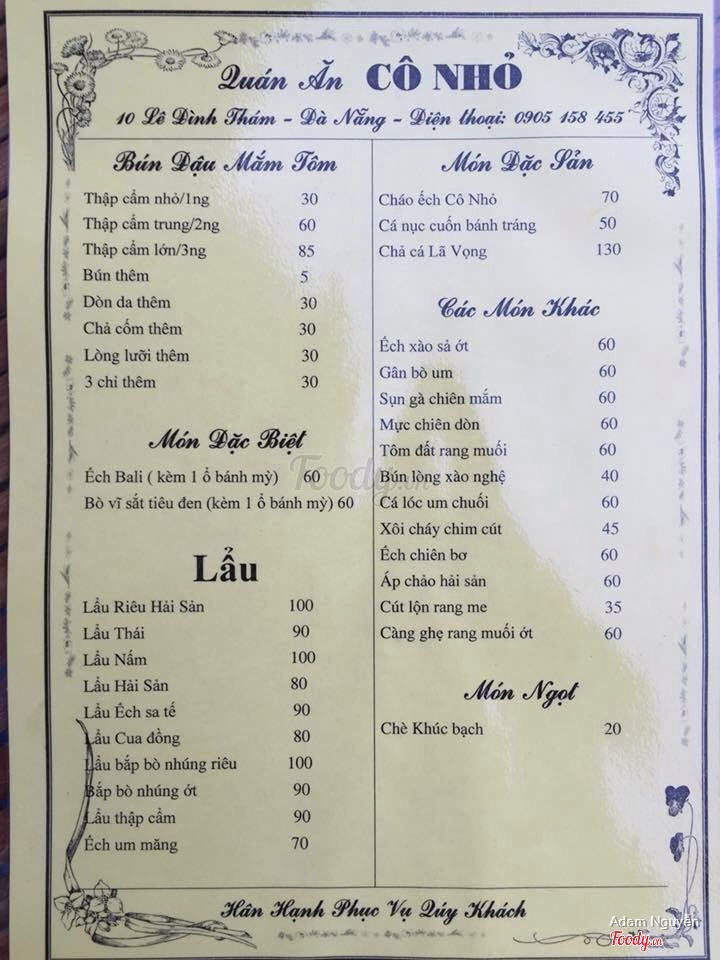 Quán Ăn CÔ NHỎ
10 Lê Đình Thám - Đà Nẵng - Điện thoại: 0905 158 455
Bún Đậu Mắm Tôm
Thập cẩm nhỏ/1ng 30
Thập cẩm trung/2ng 60
Thập cẩm lớn/3ng 85
Bún thêm 5
Dòn da thêm 30
Chả cốm thêm 30
Lòng lưỡi thêm 30
3 chỉ thêm 30
Món Đặc Biệt
Ếch Bali ( kèm 1 ổ bánh mỳ) 60
Bò vĩ sắt tiêu đen (kèm 1 ổ bánh mỳ) 60
Lẩu
Lẩu Riêu Hải Sản 100
Lẩu Thái 90
Lẩu Nấm 100
Lẩu Hải Sản 80
Lẩu Ếch sa tế 90
Lẩu Cua đồng 80
Lẩu bắp bò nhúng riêu 100
Bắp bò nhúng ớt 90
Lẩu thập cẩm 90
Ếch um măng 70
Món Đặc Sản
Cháo ếch Cô Nhỏ 70
Cá nục cuốn bánh tráng 50
Chả cá Lã Vọng 130
Các Món Khác
Ếch xào sả ớt 60
Gân bò um 60
Sụn gà chiên mắm 60
Mực chiên dòn 60
Tôm đất rang muối 60
Bún lòng xào nghệ 40
Cá lóc um chuối 60
Xôi cháy chim cút 45
Ếch chiên bơ 60
Áp chảo hải sản 60
Cút lộn rang me 35
Càng ghẹ rang muối ớt 60
Món Ngọt
Chè Khúc bạch 20
Hân Hạnh Phục Vụ Qúy Khách
Foody.vn
Adam Nguyễn
Foody.vn